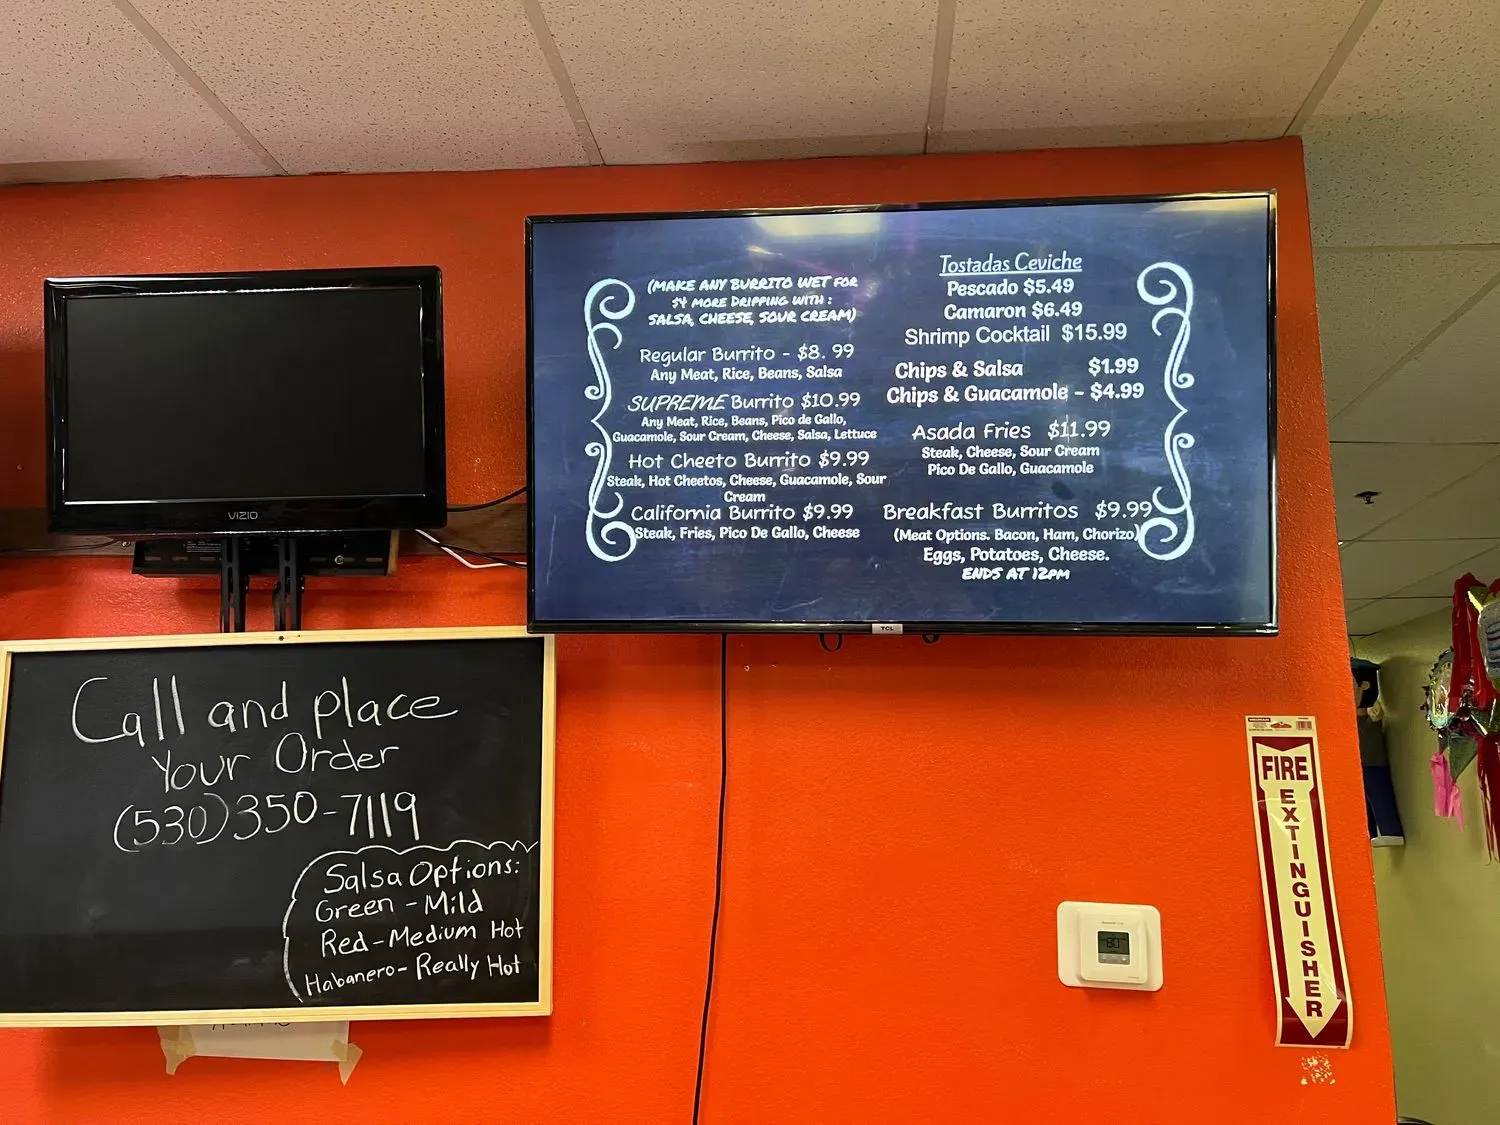 (MAKE ANY BURRITO WET FOR
$4 MORE DRIPPING WITH :
SALSA, CHEESE, SOUR CREAM)
Regular Burrito - $8. 99
Any Meat, Rice, Beans, Salsa
SUPREME Burrito $10.99
Any Meat, Rice, Beans, Pico de Gallo,
Guacamole, Sour Cream, Cheese, Salsa, Lettuce
Hot Cheeto Burrito $9.99
Steak, Hot Cheetos, Cheese, Guacamole, Sour
Cream
California Burrito $9.99
Steak, Fries, Pico De Gallo, Cheese
Tostadas Ceviche
Pescado $5.49
Camaron $6.49
Shrimp Cocktail $15.99
Chips & Salsa $1.99
Chips & Guacamole - $4.99
Asada Fries $11.99
Steak, Cheese, Sour Cream
Pico De Gallo, Guacamole
Breakfast Burritos $9.99
(Meat Options. Bacon, Ham, Chorizo)
Eggs, Potatoes, Cheese.
ENDS AT 12PM
TCL
VIZIO
Call and place
Your Order
(530)350-7119
Salsa Options:
Green - Mild
Red - Medium Hot
Habanero - Really Hot
80
FIRE
EXTINGUISHER